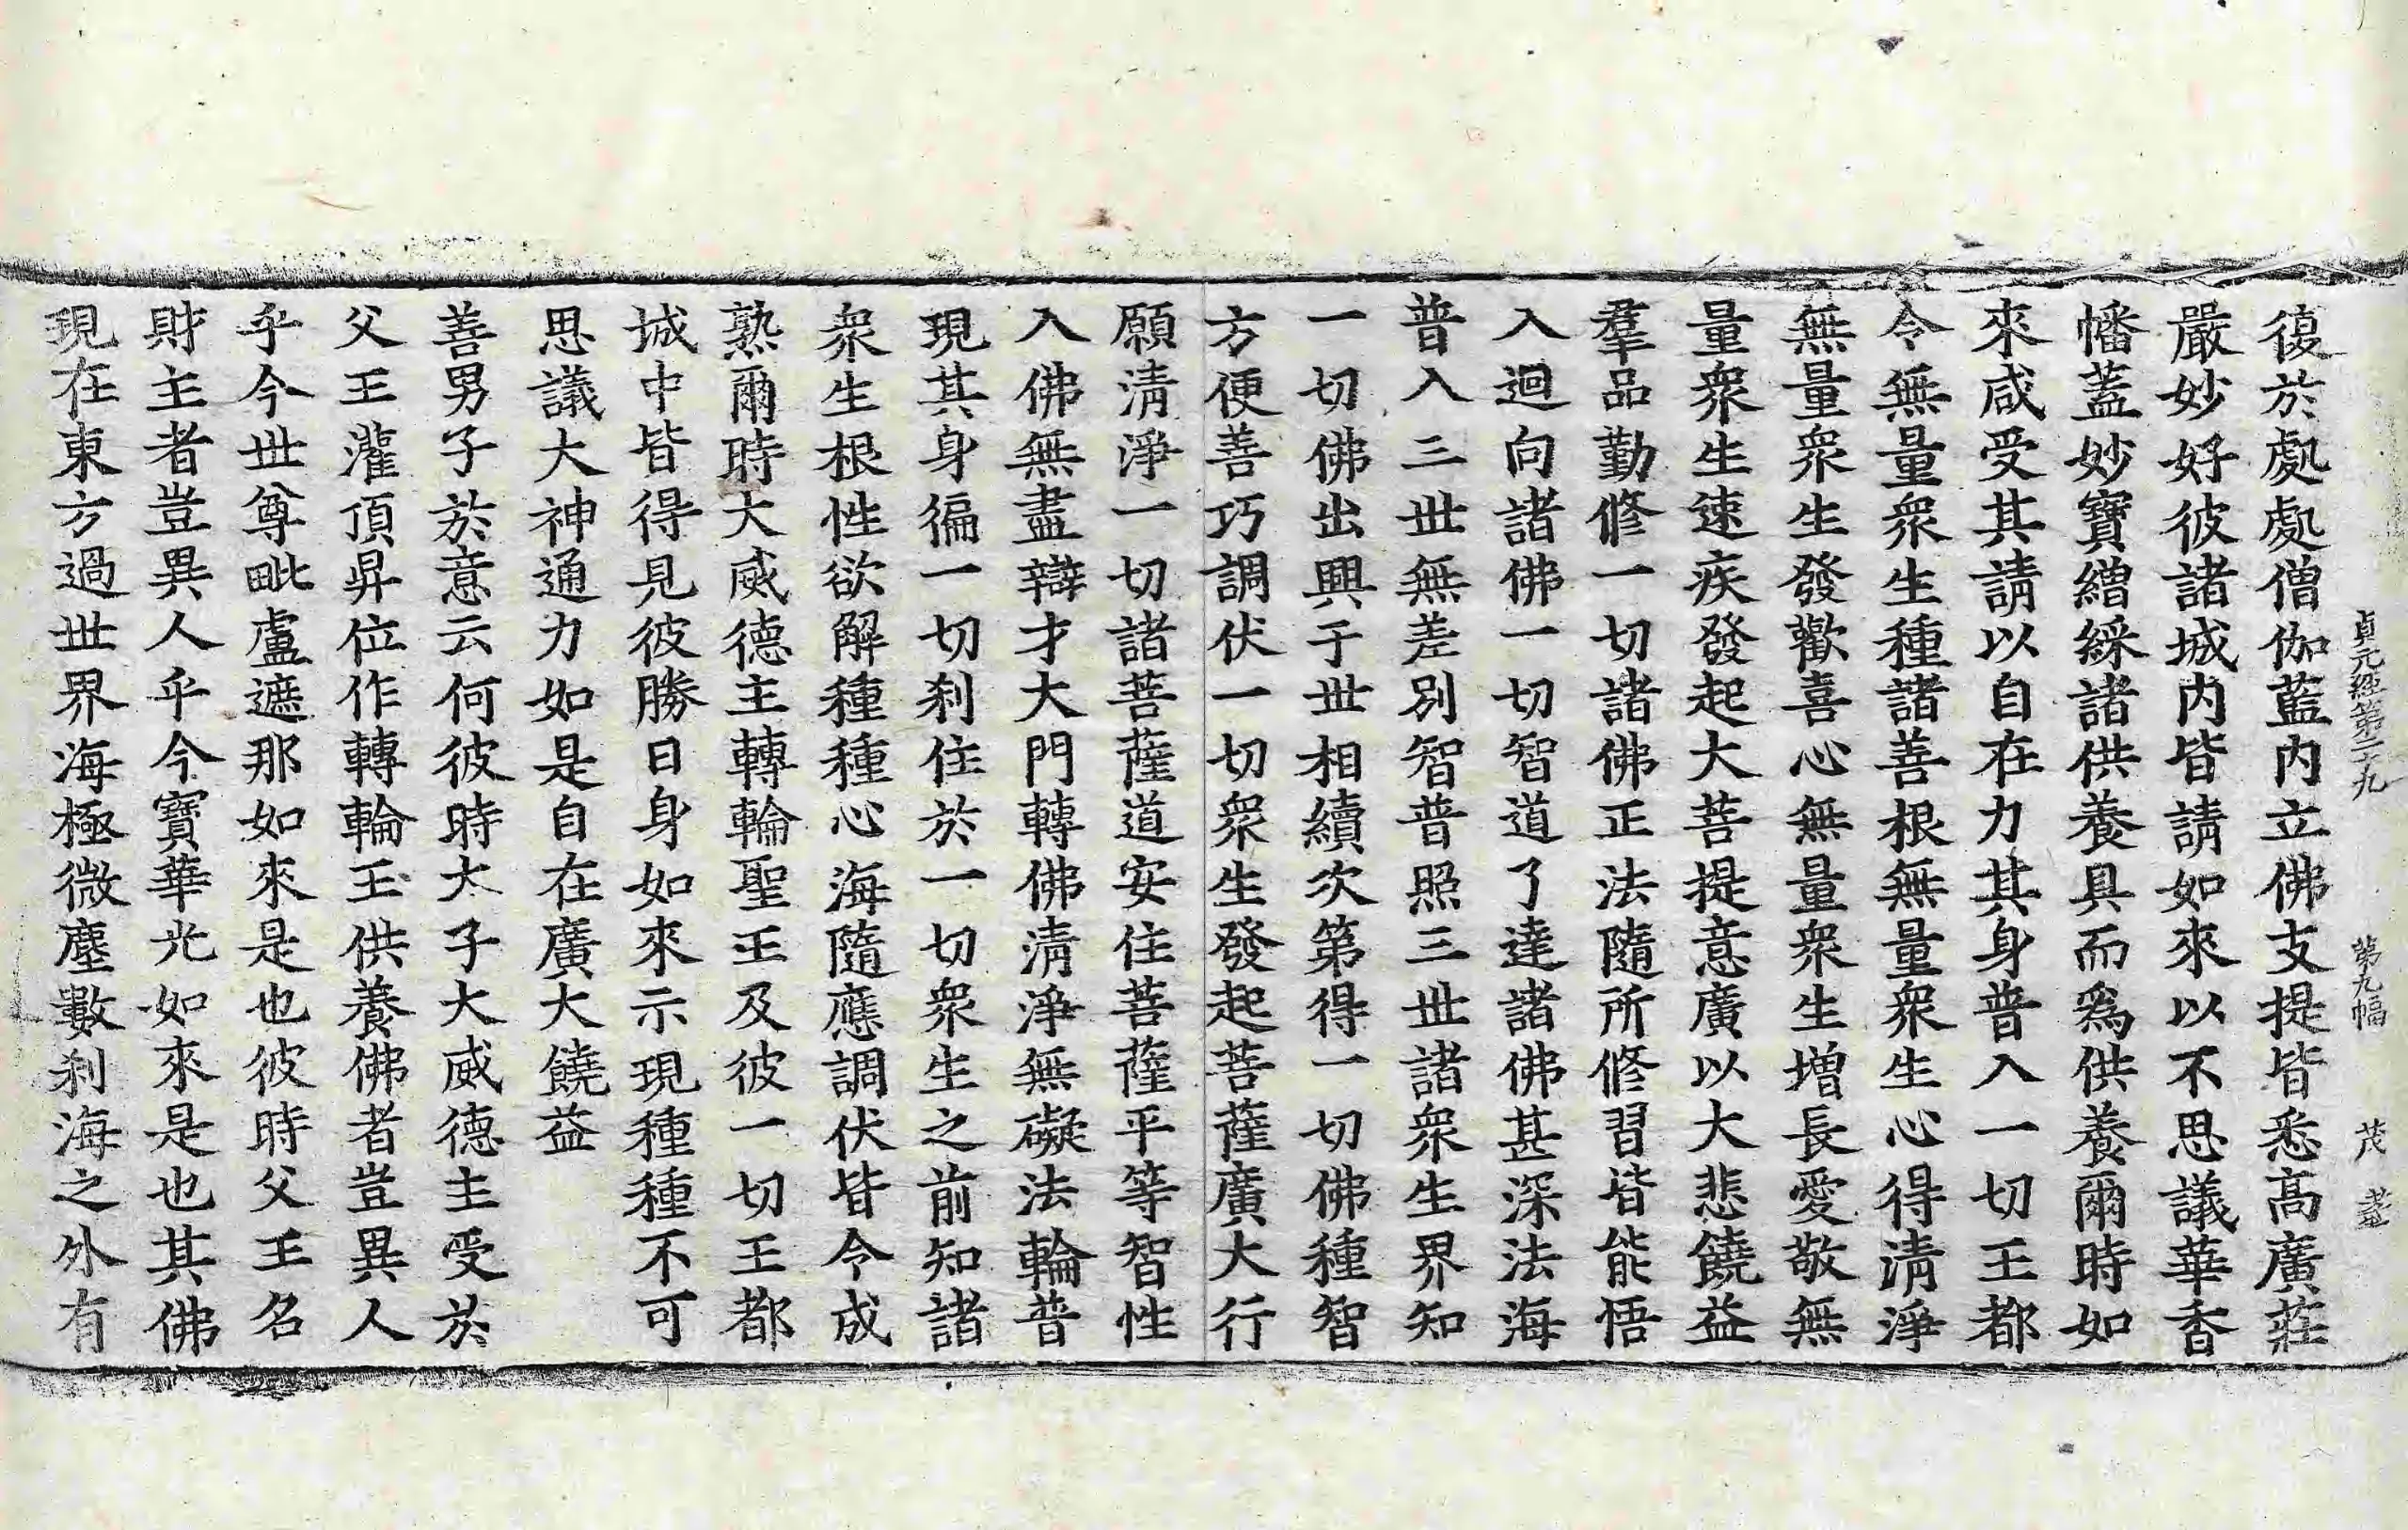 貞元經第二十九 第九幅 茂
復於處處僧伽藍內立佛支提皆悉高廣莊
嚴妙好彼諸城內皆請如來以不思議華香
幡蓋妙寶繒綵諸供養具而爲供養爾時如
來咸受其請以自在力其身普入一切王都
令無量眾生種諸善根無量眾生心得清淨
無量眾生發歡喜心無量眾生增長愛敬無
量眾生速疾發起大菩提意廣以大悲饒益
羣品勤修一切諸佛正法隨所修習皆能悟
入迴向諸佛一切智道了達諸佛甚深法海
普入三世無差別智普照三世諸眾生界知
一切佛出興于世相續次第得一切佛種智
方便善巧調伏一切眾生發起菩薩廣大行
願清淨一切諸菩薩道安住菩薩平等智性
入佛無盡辯才大門轉佛清淨無礙法輪普
現其身徧一切剎住於一切眾生之前知諸
眾生根性欲解種種心海隨應調伏皆令成
熟爾時大威德主轉輪聖王及彼一切王都
城中皆得見彼勝日身如來示現種種不可
思議大神通力如是自在廣大饒益
善男子於意云何彼時太子大威德主受於
父王灌頂昇位作轉輪王供養佛者豈異人
乎今世尊毗盧遮那如來是也彼時父王名
財主者豈異人乎今寶華光如來是也其佛
現在東方過世界海極微塵數剎海之外有